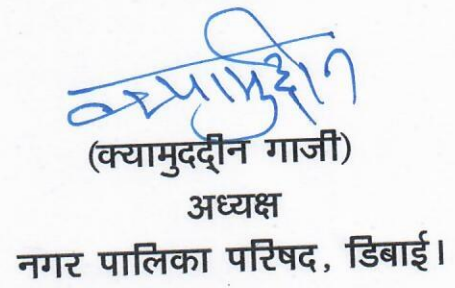 क्यामुद्दीन
(क्यामुददीन गाजी)
अध्यक्ष
नगर पालिका परिषद, डिबाई।